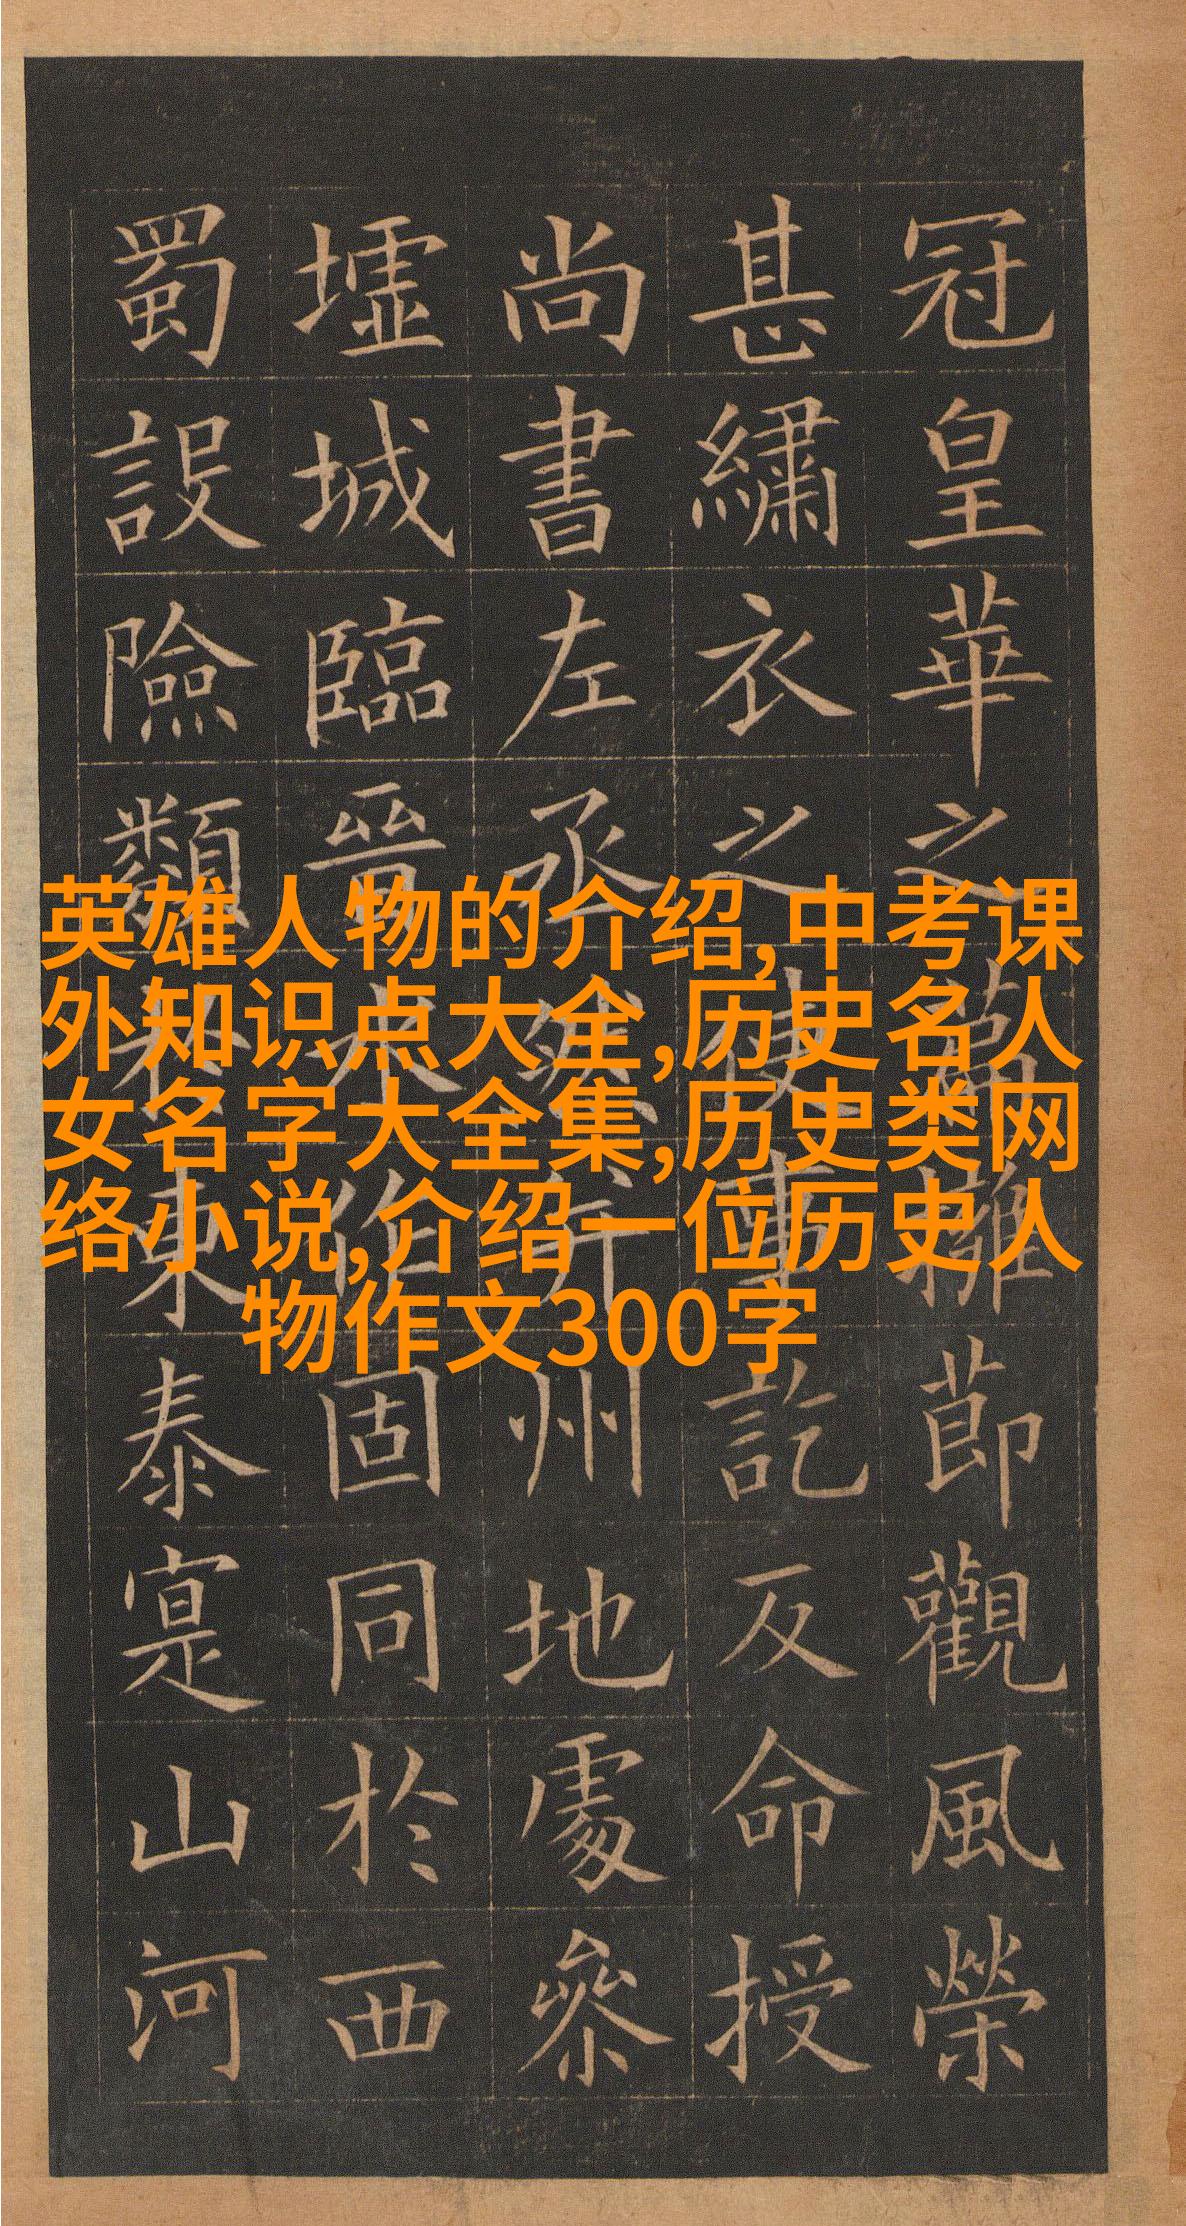 冠皇華之節觀風榮
甚繡衣之使事訖反命授
尚書左丞州地處參
墟城臨晉水作固同於西
蜀設險類於東泰寔山河
英雄人物的介绍,中考课
外知识点大全,历史名人
女名字大全集,历史类网
络小说,介绍一位历史人
物作文300字